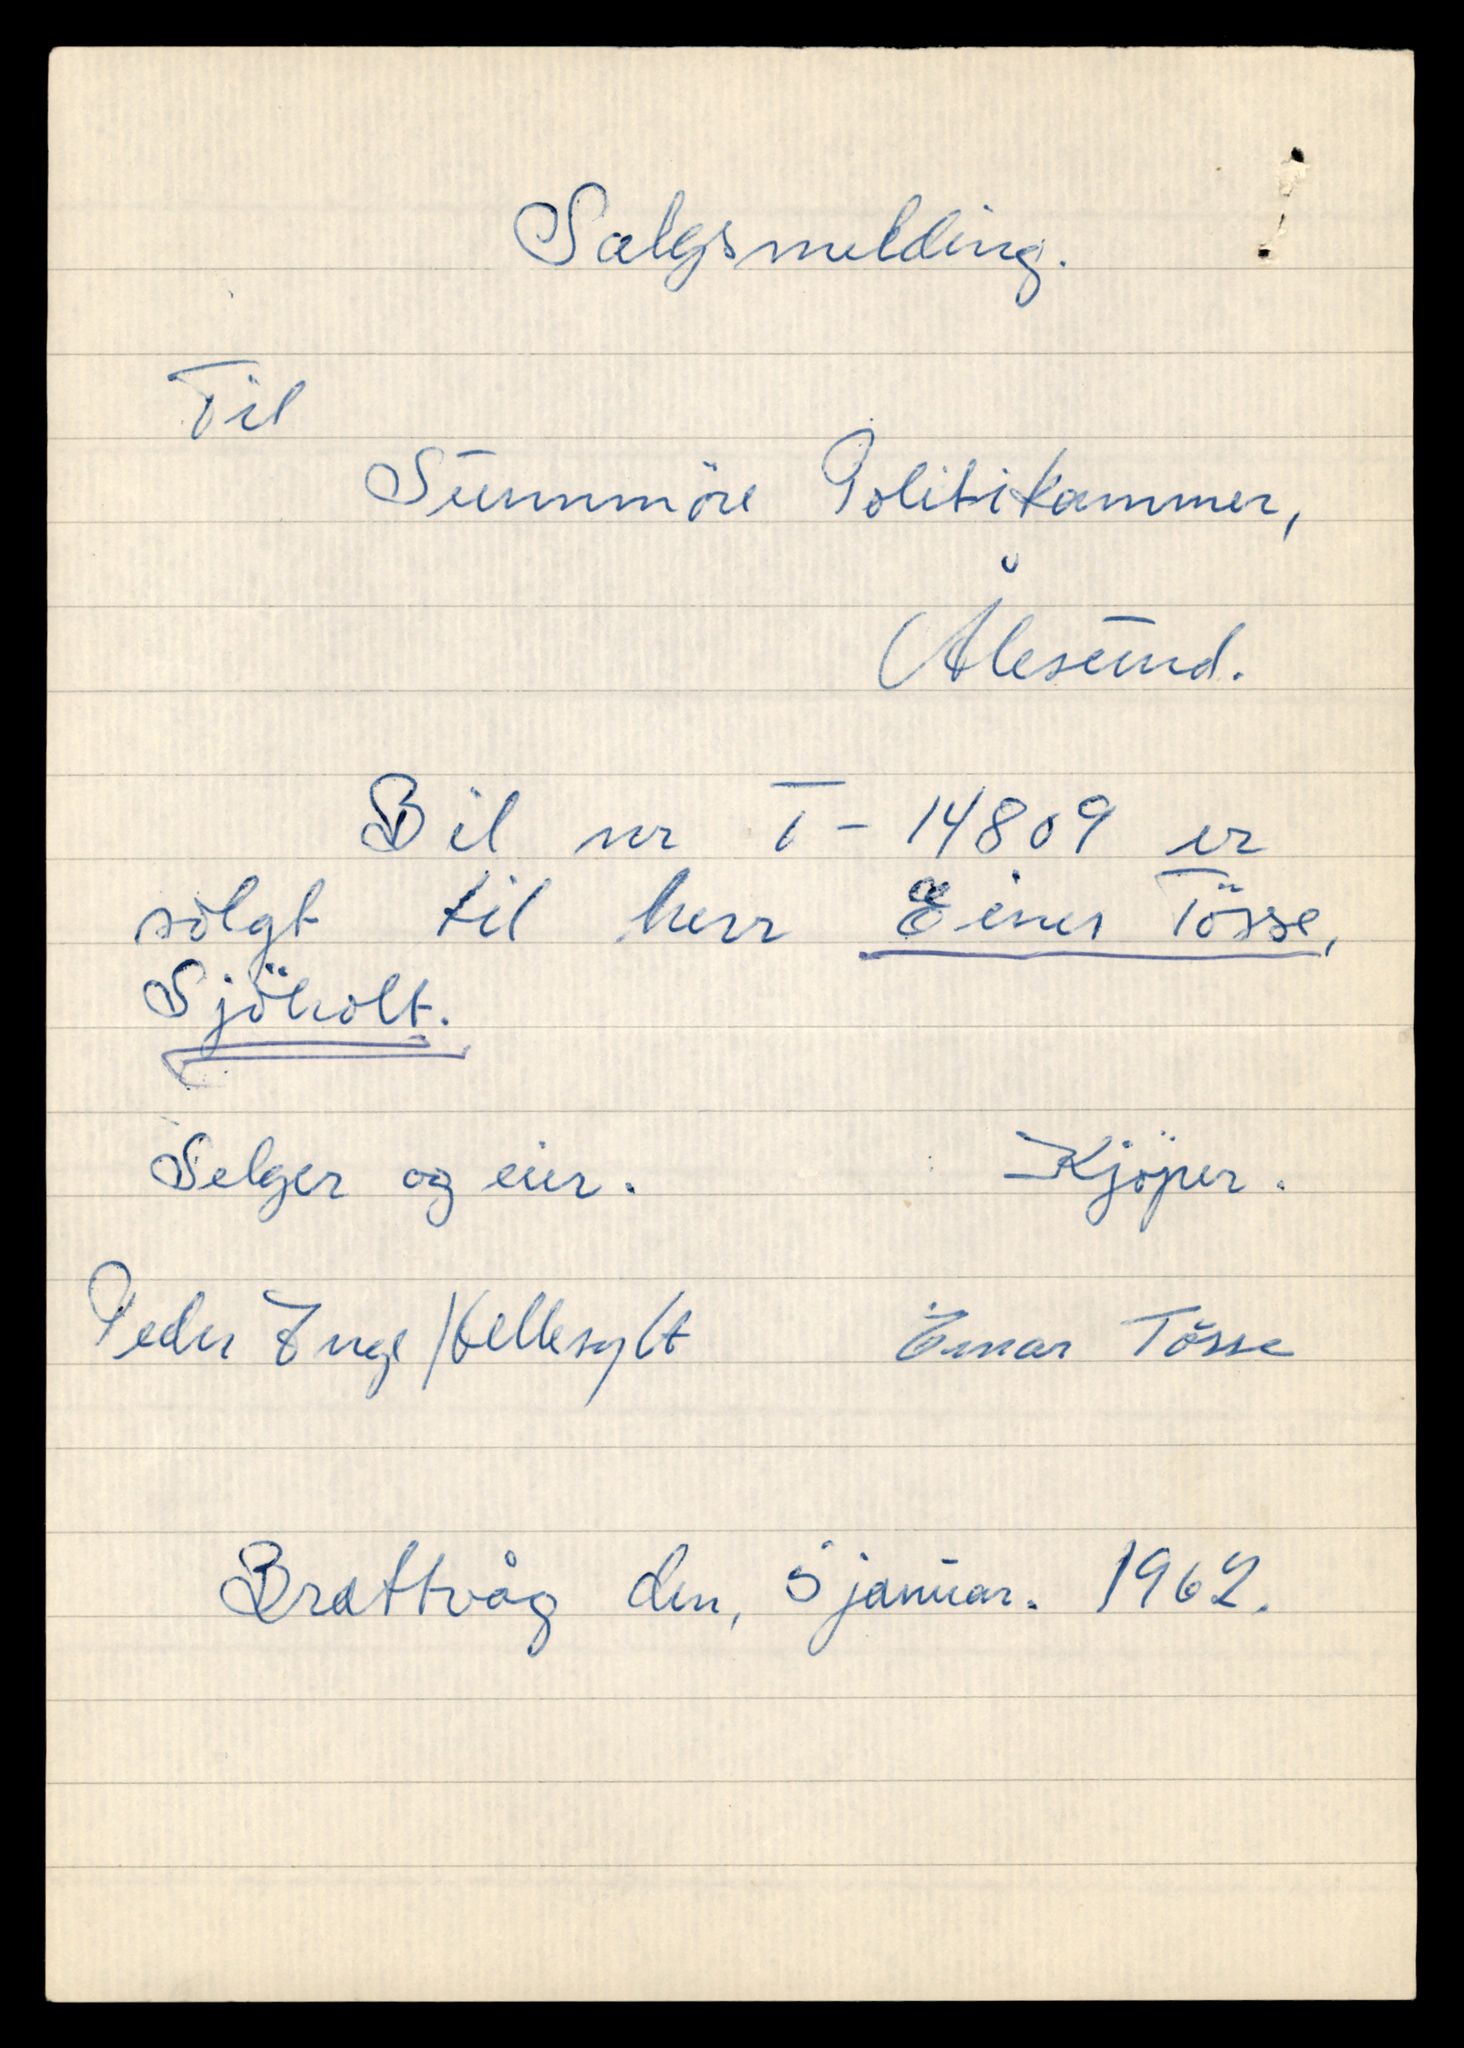 Salgsmelding.
Til
Sunnmöre Politikammer,
Ålesund.
Bil nr T-14809 er
solgt til herr Einar Tösse,
Sjöholt.
Selger og eier. Kjöper.
Peder Inge Hellesylt Einar Tösse
Brattvåg den, 5 januar. 1962.